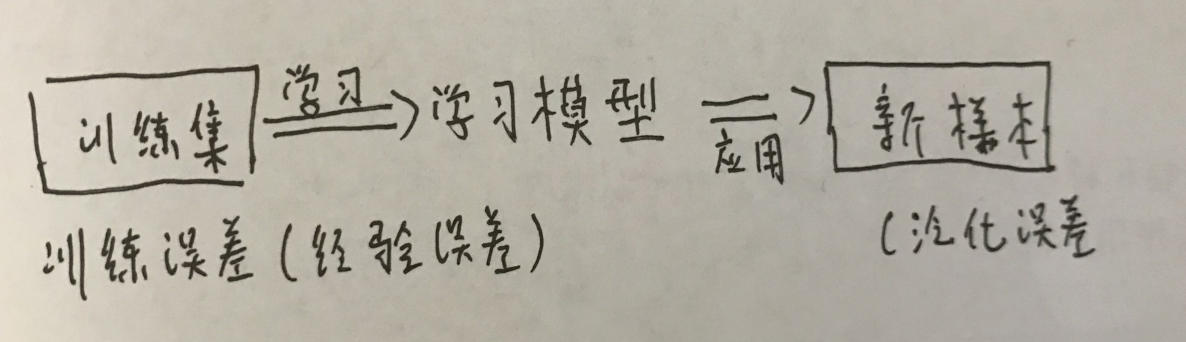 训练集 学习 学习模型 应用 新样本
训练误差(经验误差) (泛化误差